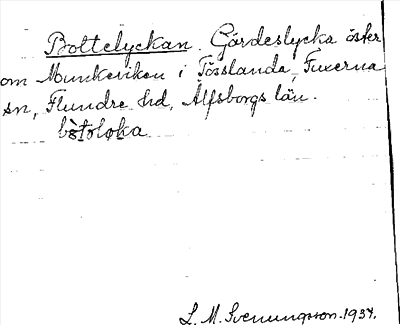 Boltelyckan. Gärdeslycka öster
om Munkeviken i Tösslanda, Fuxerna
sn, Flundre hd, Älfsborgs län.
bòtoloka
L. M. Svenungsson. 1934.